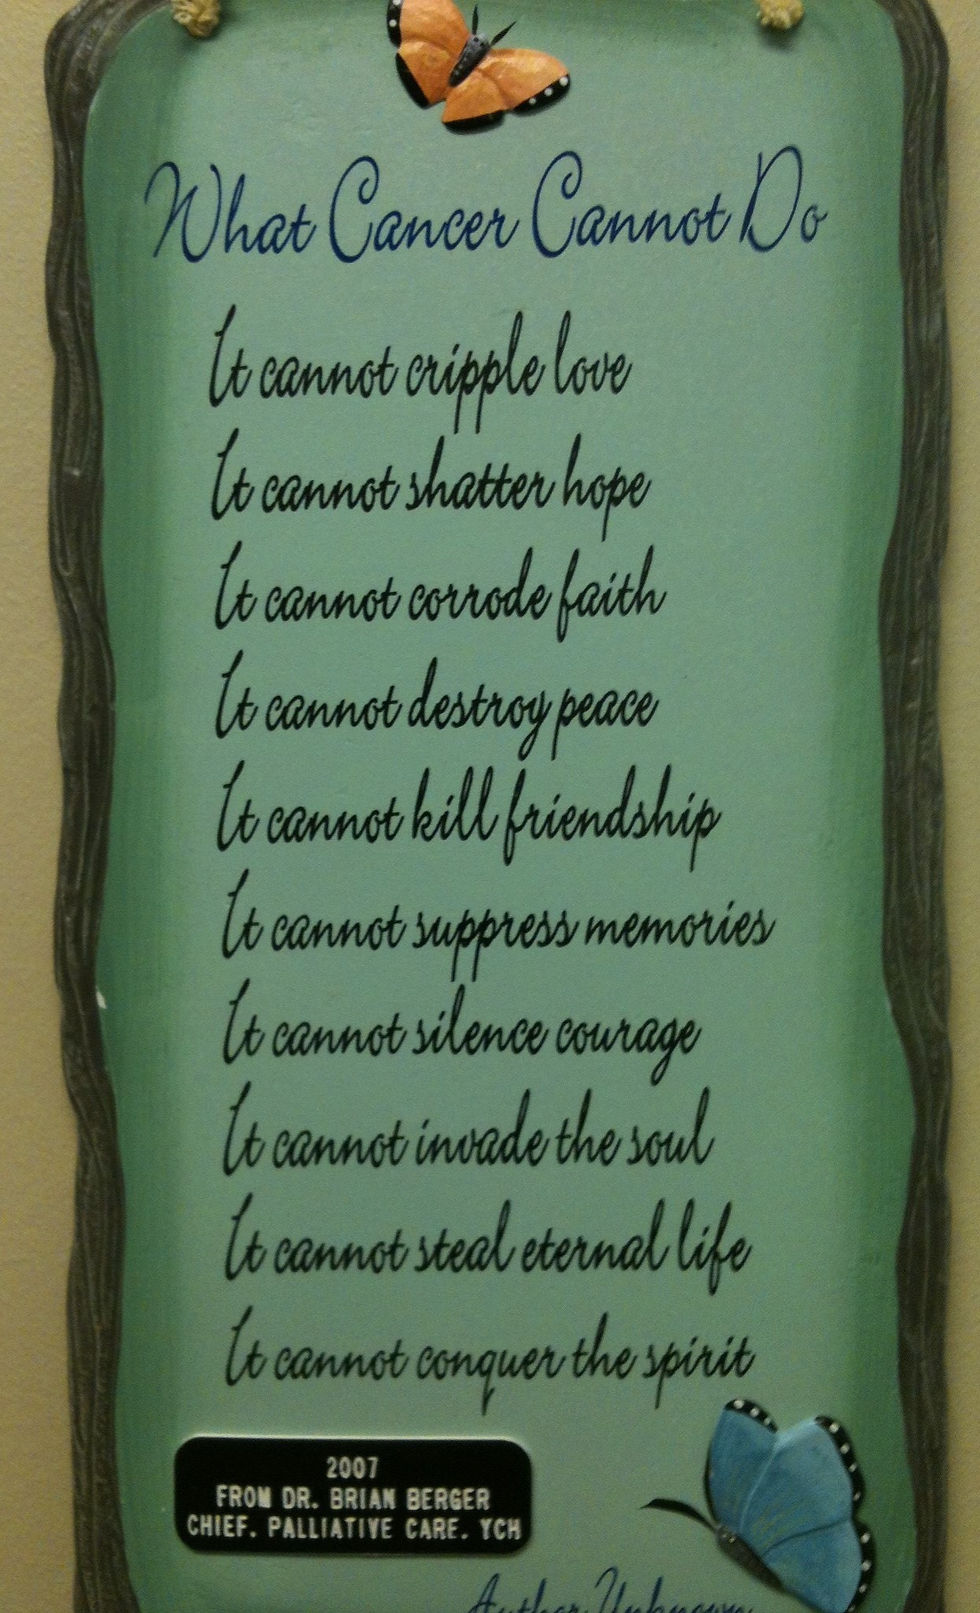 What Cancer Cannot Do
It cannot cripple love
It cannot shatter hope
It cannot corrode faith
It cannot destroy peace
It cannot kill friendship
It cannot suppress memories
It cannot silence courage
It cannot invade the soul
It cannot steal eternal life
It cannot conquer the spirit
2007
FROM DR. BRIAN BERGER
CHIEF. PALLIATIVE CARE. YCH
Author Unknown